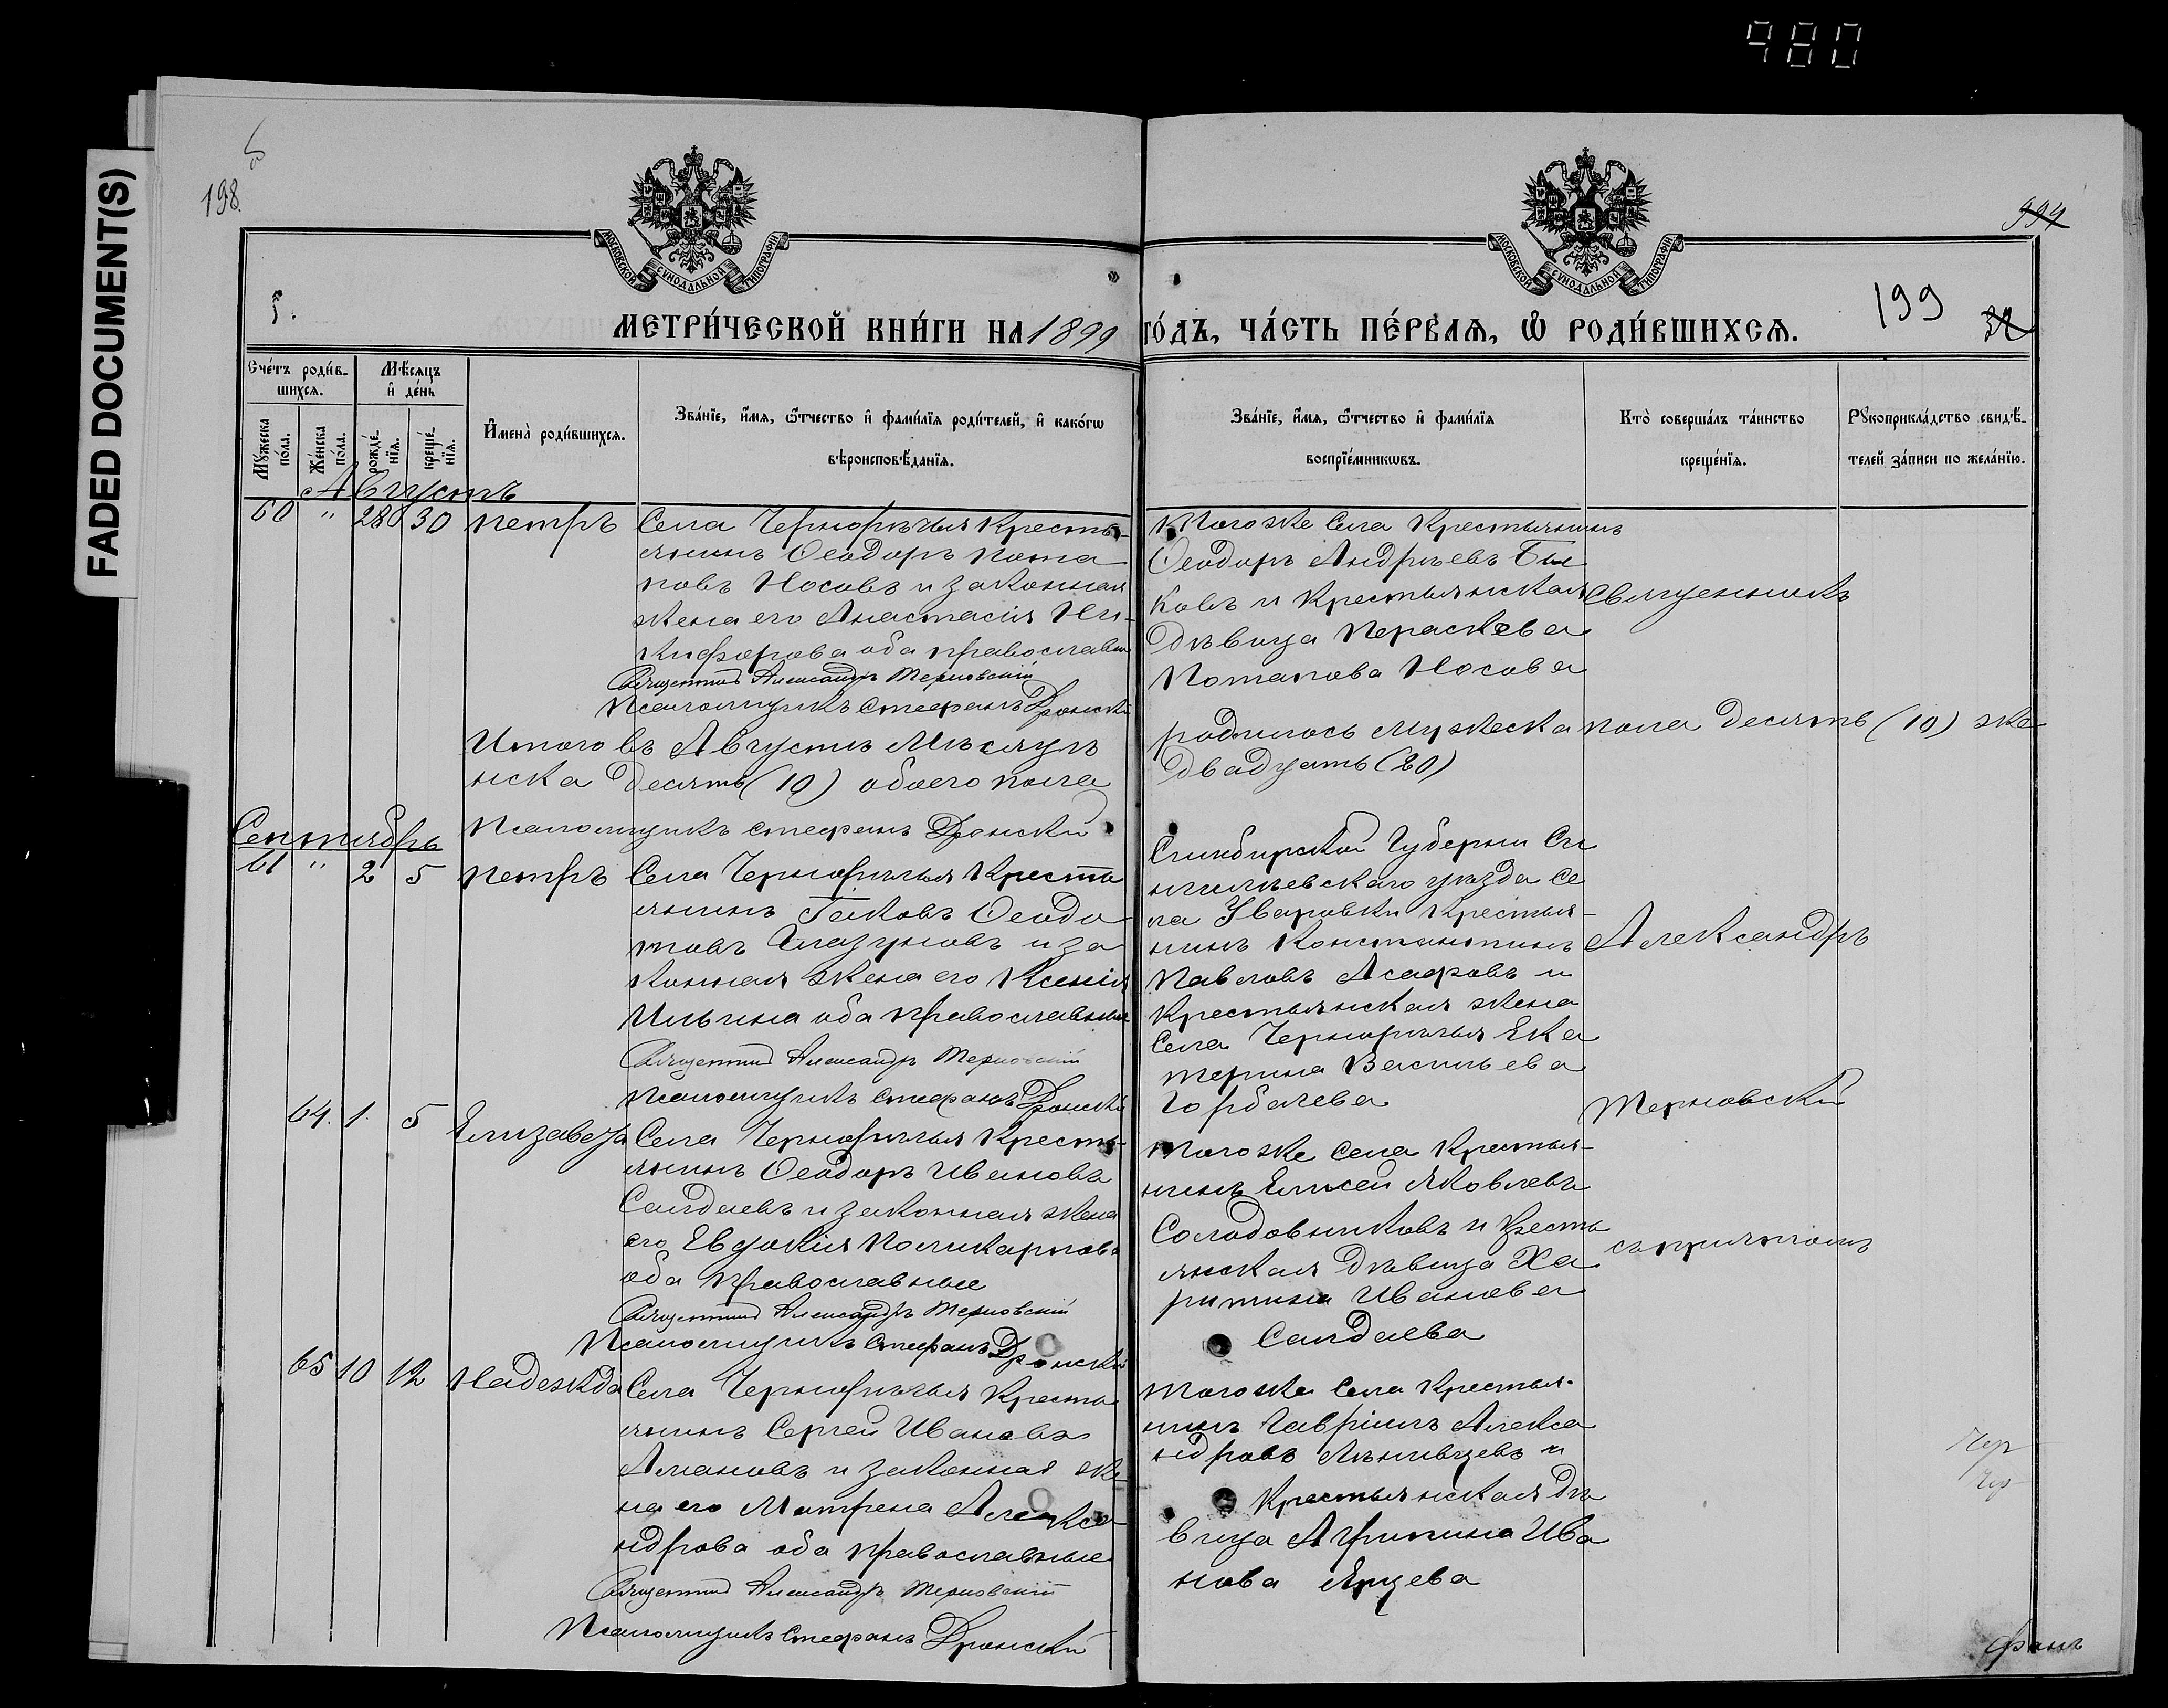 980
FADED DOCUMENT(S)
198.
994
199
5.
МОСКОВСКОЙ СѴНОДАЛЬНОЙ ТИПОГРАФІИ
МОСКОВСКОЙ СѴНОДАЛЬНОЙ ТИПОГРАФІИ
МЕТРИ́ЧЕСКОЙ КНИ́ГИ НА 1899 ГО́ДЪ, ЧА́СТЬ ПЕ́РВАѦ, Ѡ҆ РОДИ́ВШИХСѦ.
Сче́тъ роди́в-
шихсѧ.
Мѣ́сѧцъ
и҆ де́нь
Мꙋ́жеска по́ла.
Же́нска по́ла.
рожде́-нїѧ.
креще́-нїѧ.
И҆мена̀ роди́вшихсѧ.
Зва́нїе, и҆́мѧ, ѻ҆́тчество и҆ фами́лїѧ роди́телей, и҆ како́гѡ
вѣроисповѣ́данїѧ.
Зва́нїе, и҆́мѧ, ѻ҆́тчество и҆ фами́лїѧ
воспрїе́мникѡвъ.
Кто̀ соверша́лъ та́инство
креще́нїѧ.
Рꙋкоприкла́дство свидѣ́-
телей за́писи по жела́нїю.
Августъ
60 " 28 30 Петръ Села Чернорѣчья Кресть-
янинъ Ѳеодоръ Пота
повъ Носовъ и законная
жена его Анастасія Ни-
кифорова оба православн
Священникъ Александръ Терновскій
Псаломщикъ Стефанъ Дронскій
Тогоже Села Крестьянинъ
Ѳеодоръ Андреевъ Бы
ковъ и Крестьянская
дѣвица Параскева
Потапова Носова
Священникъ
Итого въ Августѣ Мѣсяцѣ родилось мужеска пола десять (10) же
нска десять (10) обоего пола двадцать (20)
Псаломщикъ Стефанъ Дронскій
Сентябрь
61 " 2 5 Петръ Села Чернорѣчья Кресть
янинъ Іаковъ Ѳеодо
товъ Глазуновъ и за
конная жена его Ксенія
Ильина оба православные
Священникъ Александръ Терновскій
Псаломщикъ Стефанъ Дронскій
Симбирской Губерніи Си
нгилѣевскаго уѣзда Се
ла Уваровки Крестья-
нинъ Константинъ
Павловъ Асафовъ и
Крестьянская жена
Села Чернорѣчья Ека
терина Васильева
Горбачева
Александръ
64. 1. 5 Елизавета Села Чернорѣчья Кресть-
янинъ Ѳеодоръ Ивановъ
Салдаевъ и законная жена
его Евдокія Поликарпова
оба православные
Священникъ Александръ Терновскій
Псаломщикъ Стефанъ Дронскій
Тогоже Села Крестья-
нинъ Елисей Яковлевъ
Солодовниковъ и Кресть
янская дѣвица Ха
ритина Иванова
Салдаева
Терновскій
съ причтомъ
65 10 12 Надежда Села Чернорѣчья Кресть
янинъ Сергей Ивановъ
Алмановъ и законная же
на его Матрена Алекса
ндрова оба православные
Священникъ Александръ Терновскій
Псаломщикъ Стефанъ Дронскій
Тогоже Села Крестья-
нинъ Гавріилъ Алекса
ндровъ Лѣнивцевъ и
Крестьянская дѣ
вица Агрипина Ива
нова Ярцева